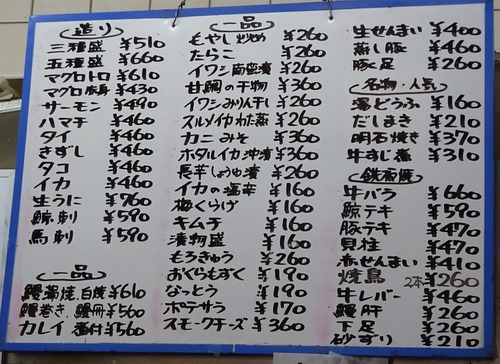 造り
三種盛 ¥510
五種盛 ¥660
マグロトロ ¥610
マグロ赤身 ¥430
サーモン ¥490
ハマチ ¥460
タイ ¥460
きずし ¥460
タコ ¥460
イカ ¥460
生うに ¥760
鯨刺 ¥590
馬刺 ¥590
一品
鰻蒲焼、白焼 ¥610
鰻巻き、鰻冊 ¥560
カレイ 煮付 ¥560
一品
もやし炒め ¥260
たらこ ¥260
イワシ南蛮漬 ¥260
甘鯛の干物 ¥360
イワシみりん干し ¥260
スルメイカわた蒸 ¥260
カニみそ ¥360
ホタルイカ沖漬 ¥360
長芋しょうゆ漬 ¥260
イカの塩辛 ¥160
梅くらげ ¥160
キムチ ¥160
漬物盛 ¥160
もろきゅう ¥260
おくらもずく ¥190
なっとう ¥190
ポテサラ ¥170
スモークチーズ ¥360
生せんまい ¥400
蒸し豚 ¥460
豚足 ¥260
名物・人気
湯どうふ ¥160
だしまき ¥210
明石焼き ¥370
牛すじ煮 ¥310
鉄板焼
牛バラ ¥660
鯨テキ ¥590
豚テキ ¥470
貝柱 ¥470
赤せんまい ¥410
焼鳥 2本 ¥260
牛レバー ¥460
鰻肝 ¥260
下足 ¥260
砂ずり ¥210